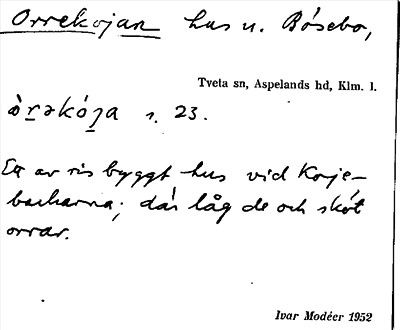 Orrekojan hus u. Bösebo,
Tveta sn, Aspelands hd, Klm. l.
òrəkója s. 23.
Ett av ris byggt hus vid Korje-
backarna; där låg de och sköt
orrar.
Ivar Modéer 1952